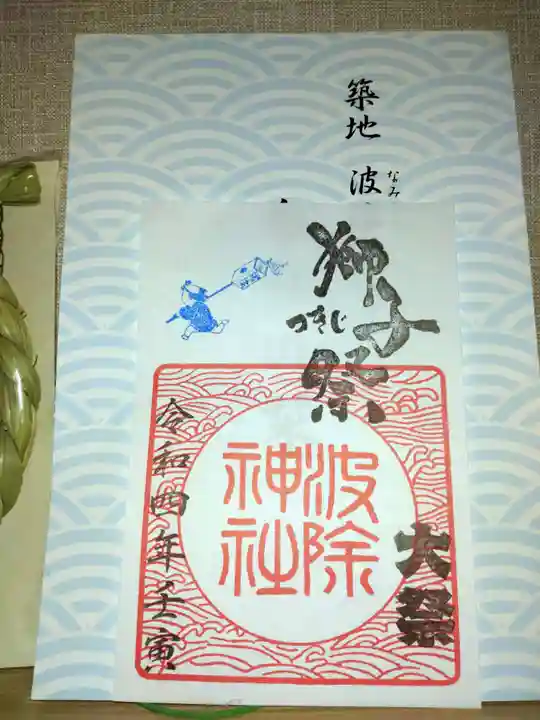 築地 波
なみ
獅子祭
つきじ
波除
神社
大祭
令和四年壬寅